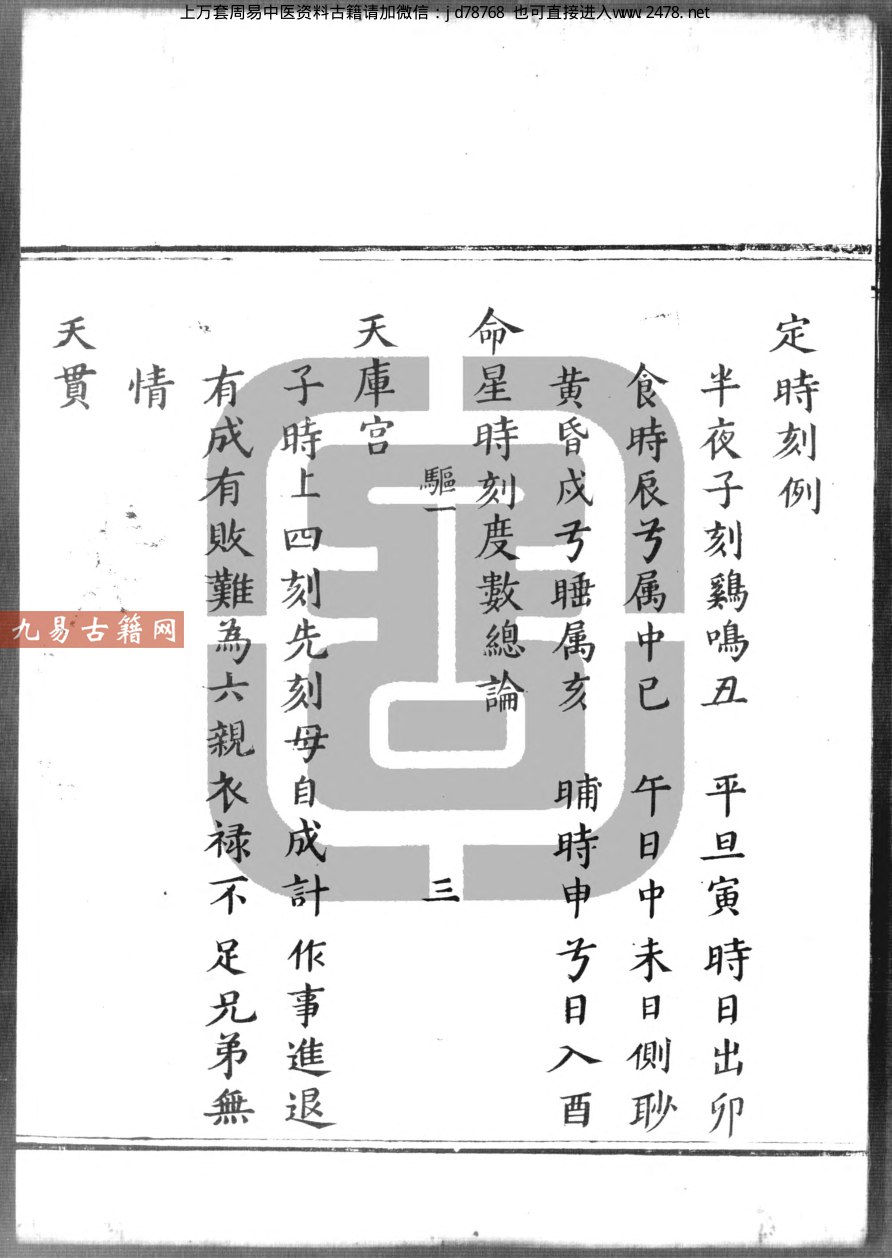 上万套周易中医资料古籍请加微信：jd78768 也可直接进入www.2478.net
定時刻例
半夜子刻鷄鳴丑 平旦寅時日出卯
食時辰兮属中巳 午日中未日側眇
黄昏戍兮睡属亥 晡時申兮日入酉
命星時刻度數總論
驅一 三
天庫宫
子時上四刻先刻母自成計作事進退
有成有敗難為六親衣禄不足兄弟無
情
天貫
九易古籍网